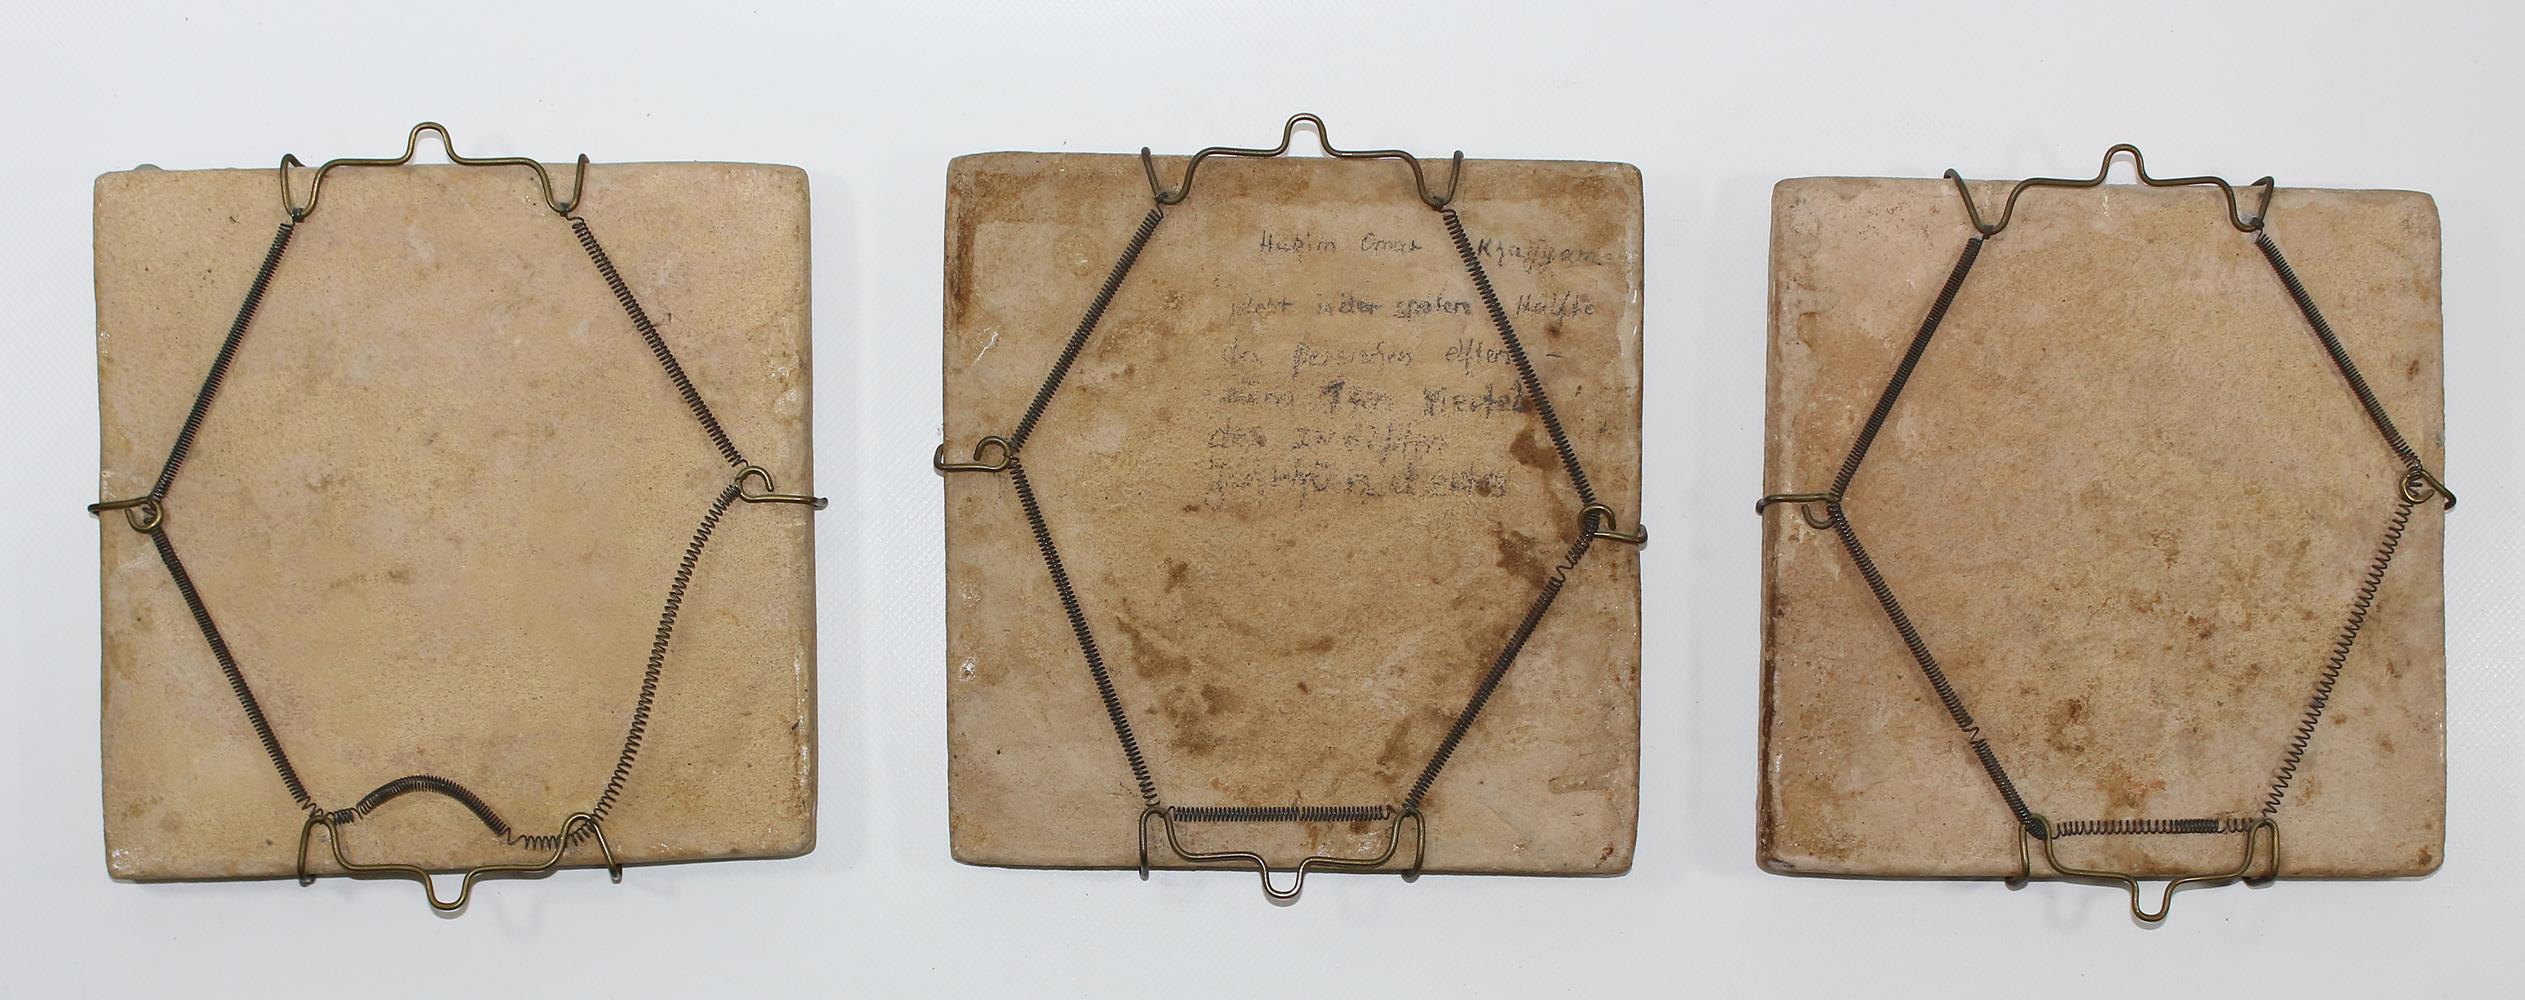 Hakim Omar Khayyam
lebt in der späten Hälfte
des persischen elften -
zum 1ten Viertel
des zwölften
Jahrhunderts